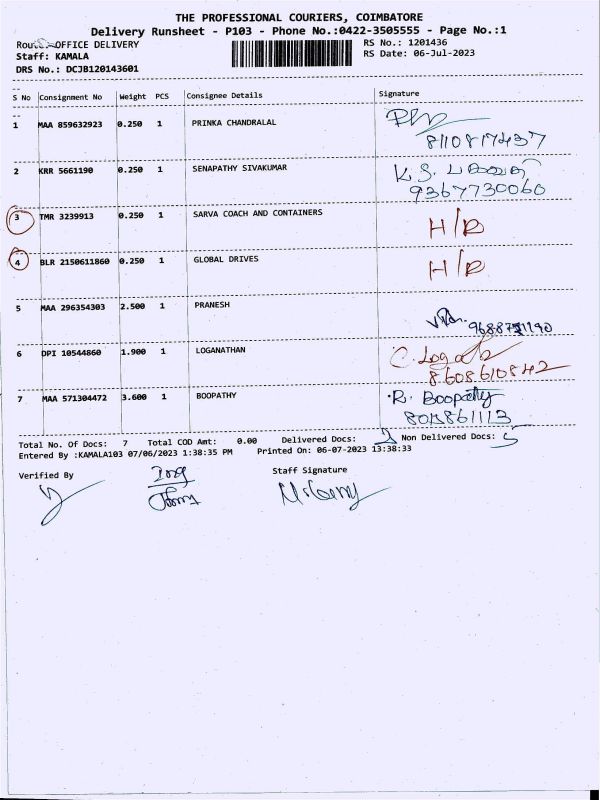 THE PROFESSIONAL COURIERS, COIMBATORE
Delivery Runsheet - P103 - Phone No.:0422-3505555 - Page No.:1
Route:-OFFICE DELIVERY RS No.: 1201436
Staff: KAMALA RS Date: 06-Jul-2023
DRS No.: DCJB120143601
S No Consignment No Weight PCS Consignee Details Signature
1 MAA 859632923 0.250 1 PRINKA CHANDRALAL
8110817437
2 KRR 5661190 0.250 1 SENAPATHY SIVAKUMAR K.S.
9367730060
3 TMR 3239913 0.250 1 SARVA COACH AND CONTAINERS H/D
4 BLR 2150611860 0.250 1 GLOBAL DRIVES H/D
5 MAA 296354303 2.500 1 PRANESH
6 DPI 10544860 1.900 1 LOGANATHAN C. Logan
8608610842
7 MAA 571304472 3.600 1 BOOPATHY R. Boopathy
Total No. Of Docs: 7 Total COD Amt: 0.00 Delivered Docs: 2 Non Delivered Docs: 5
Entered By :KAMALA103 07/06/2023 1:38:35 PM Printed On: 06-07-2023 13:38:33
Verified By Staff Signature